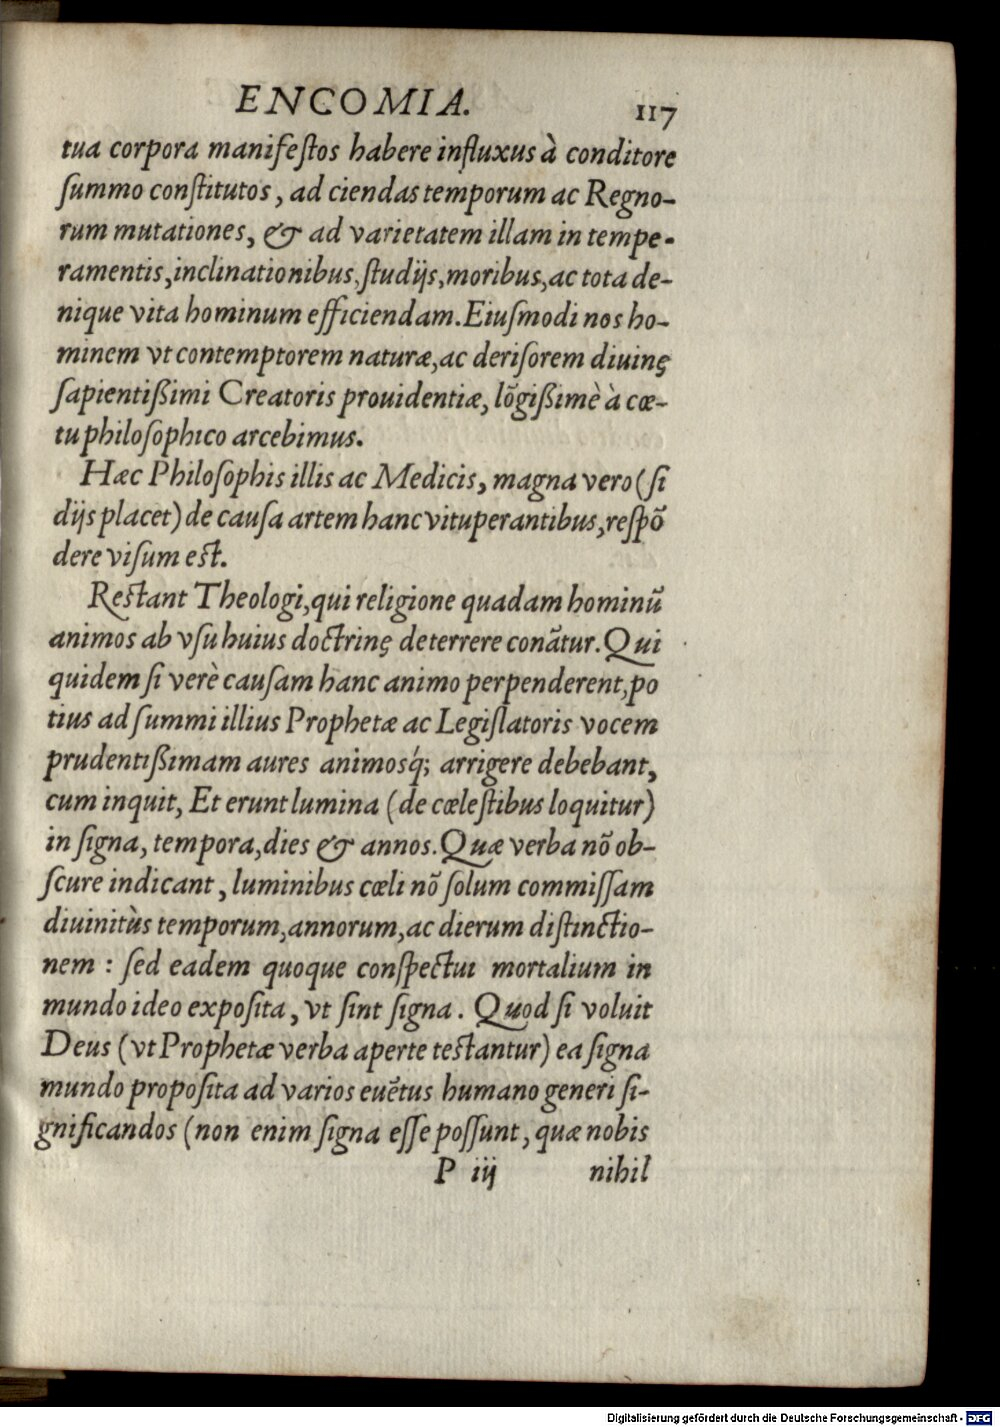 ENCOMIA. 117
tua corpora manifeſtos habere influxus à conditore
ſummo conſtitutos, ad ciendas temporum ac Regno-
rum mutationes, & ad varietatem illam in tempe-
ramentis, inclinationibus, ſtudijs, moribus, ac tota de-
nique vita hominum efficiendam. Eiuſmodi nos ho-
minem vt contemptorem naturæ, ac deriſorem diuinę
ſapientißimi Creatoris prouidentiæ, lõgißimè à cœ-
tu philoſophico arcebimus.
Hæc Philoſophis illis ac Medicis, magna vero (ſi
dijs placet) de cauſa artem hanc vituperantibus, reſpõ
dere viſum eſt.
Reſtant Theologi, qui religione quadam hominũ
animos ab vſu huius doctrinę deterrere conãtur. Qui
quidem ſi verè cauſam hanc animo perpenderent, po
tius ad ſummi illius Prophetæ ac Legiſlatoris vocem
prudentißimam aures animosq́; arrigere debebant,
cum inquit, Et erunt lumina (de cœleſtibus loquitur)
in ſigna, tempora, dies & annos. Quæ verba nõ ob-
ſcure indicant, luminibus cœli nõ ſolum commiſſam
diuinitùs temporum, annorum, ac dierum diſtinctio-
nem : ſed eadem quoque conſpectui mortalium in
mundo ideo expoſita, vt ſint ſigna. Quod ſi voluit
Deus (vt Prophetæ verba aperte teſtantur) ea ſigna
mundo propoſita ad varios euẽtus humano generi ſi-
gnificandos (non enim ſigna eſſe poſſunt, quæ nobis
P iij nihil
Digitalisierung gefördert durch die Deutsche Forschungsgemeinschaft - DFG